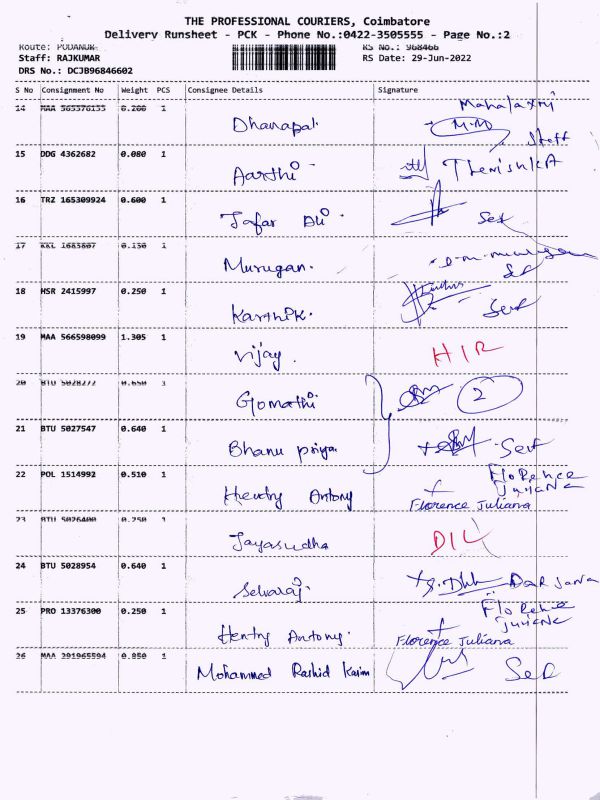 THE PROFESSIONAL COURIERS, Coimbatore
Delivery Runsheet - PCK - Phone No.:0422-3505555 - Page No.:2
Route: PODANUR RS No.: 968466
Staff: RAJKUMAR RS Date: 29-Jun-2022
DRS No.: DCJB96846602
S No Consignment No Weight PCS Consignee Details Signature
14 MAA 565376155 0.200 1 Dhanapal Mahalaxmi M.M Staff
15 DDG 4362682 0.080 1 Aarthi
16 TRZ 165309924 0.600 1 Jafar Ali Self
17 1 Murugan.
18 HSR 2415997 0.250 1 Karthik. Self
19 MAA 566598099 1.305 1 Vijay. HIR
20 BTU 5028272 0.650 Gomathi 2
21 BTU 5027547 0.640 1 Bhanu priya Self
22 POL 1514992 0.510 1 Hendry Antony Florence Juliana
Florence Juliana
23 BTU 5026400 0.250 Jayasudha DIL
24 BTU 5028954 0.640 1 Selvaraj.
25 PRO 13376300 0.250 1 Hentry Antony. Florence Juliana
Florence Juliana
26 MAA 291965594 0.850 1 Mohammed Rashid Karim Self